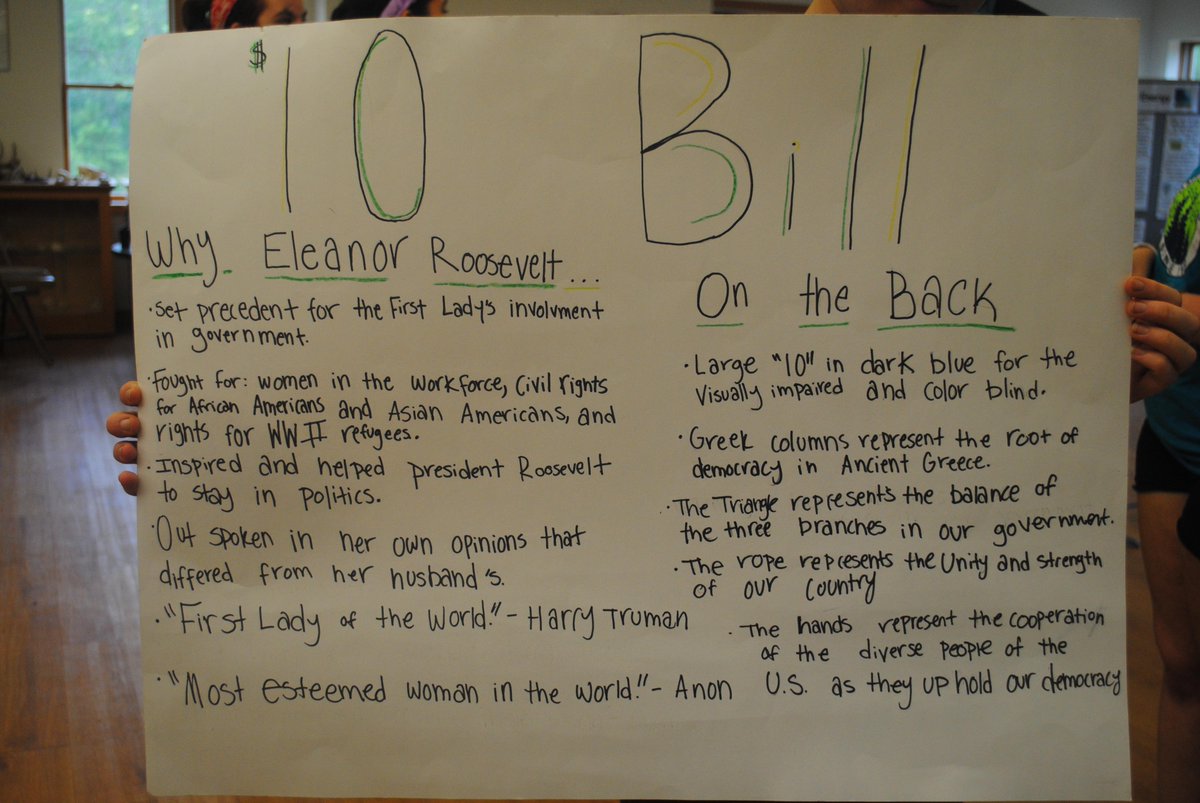 $10 Bill
Why Eleanor Roosevelt...
• Set precedent for the First Lady's involvment
in government.
• Fought for: women in the workforce, Civil rights
for African Americans and Asian Americans, and
rights for WWII refugees.
• Inspired and helped president Roosevelt
to stay in politics.
• Out spoken in her own opinions that
differed from her husband's.
• "First Lady of the World." - Harry Truman
• "Most esteemed woman in the world." - Anon
On the Back
• Large "10" in dark blue for the
Visually impaired and color blind.
• Greek columns represent the root of
democracy in Ancient Greece.
• The Triangle represents the balance of
the three branches in our government.
• The rope represents the Unity and strength
of our Country
• The hands represent the cooperation
of the diverse people of the
U.S. as they up hold our democracy